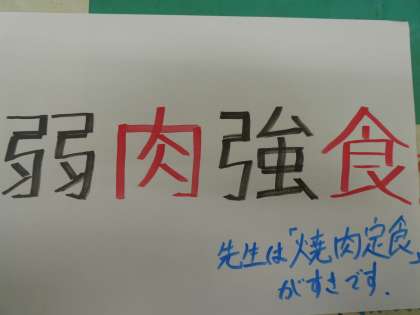 弱肉強食
先生は「焼肉定食」
がすきです.